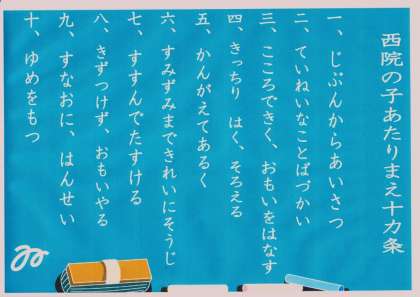 西院の子あたりまえ十カ条
一、じぶんからあいさつ
二、ていねいなことばづかい
三、こころできく、おもいをはなす
四、きっちり はく、そろえる
五、かんがえてあるく
六、すみずみまできれいにそうじ
七、すすんでたすける
八、きずつけず、おもいやる
九、すなおに、はんせい
十、ゆめをもつ